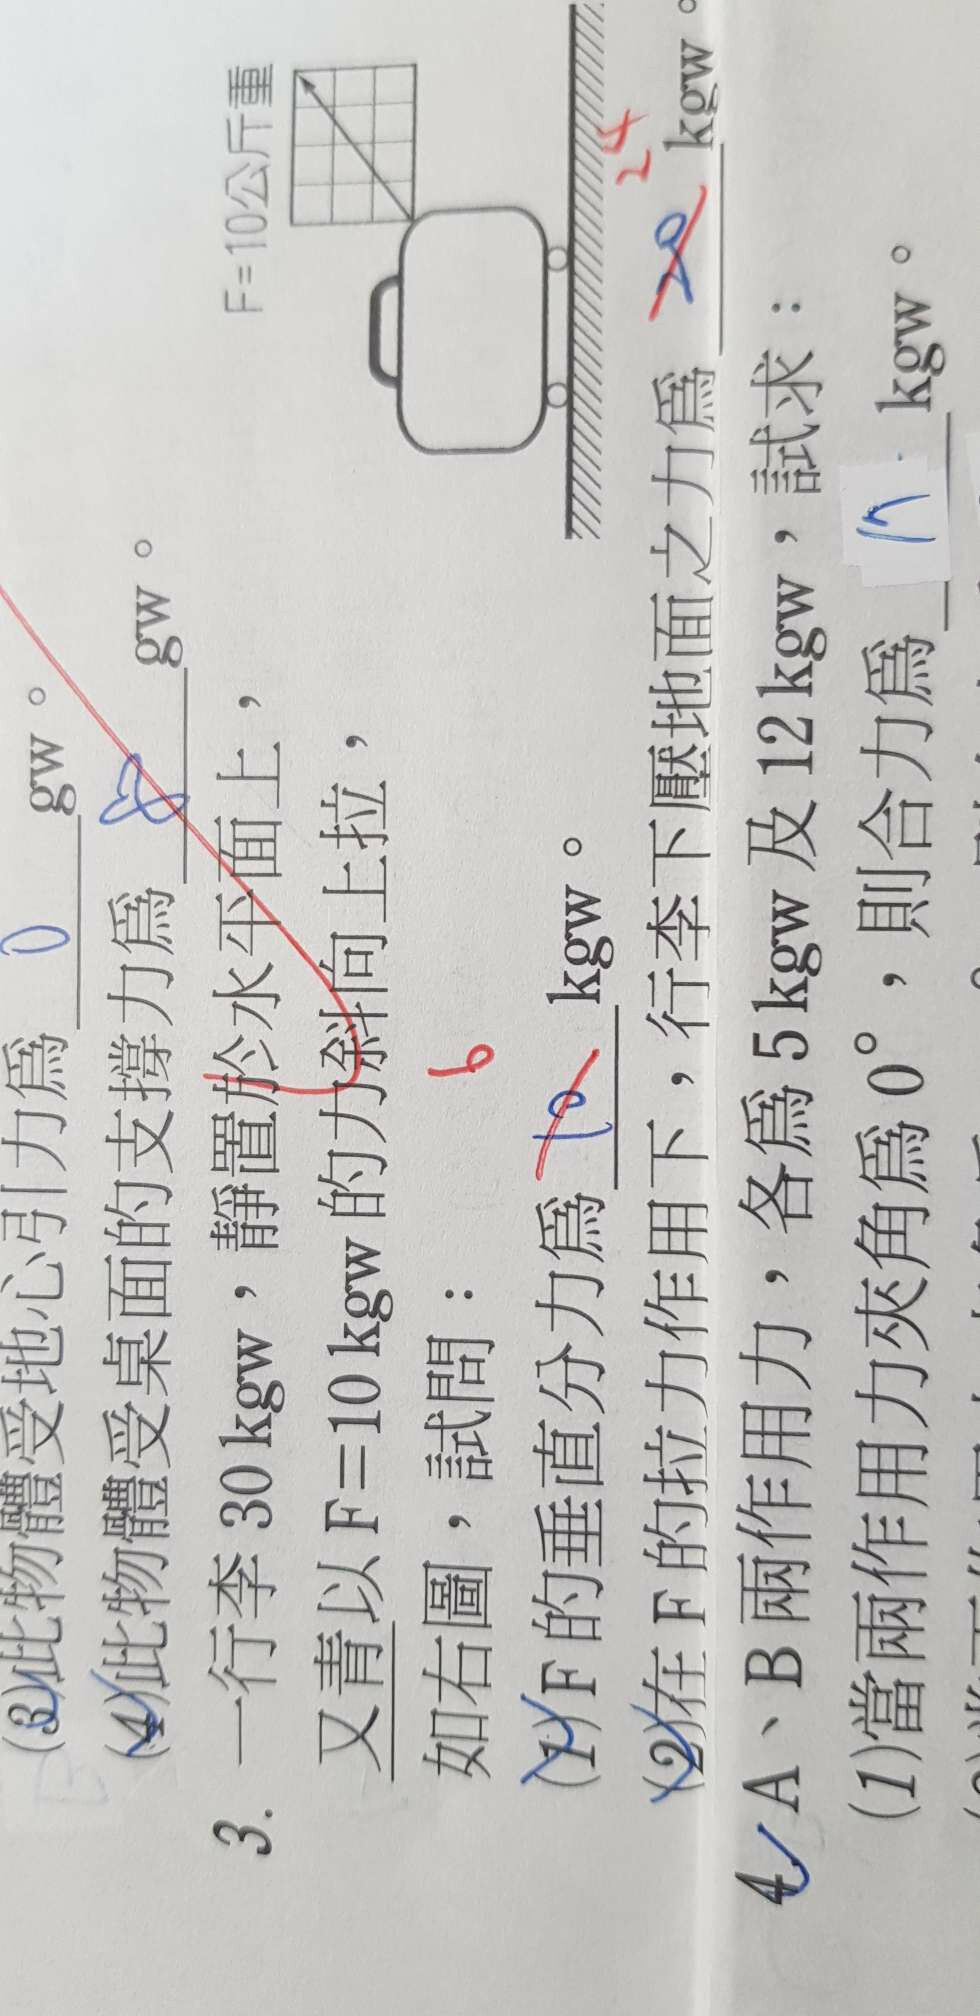 (3)此物體受地心引力為 0 gw。
(4)此物體受桌面的支撐力為 8 gw。
3. 一行李 30 kgw,靜置於水平面上,
又青以 F=10 kgw 的力斜向上拉,
如右圖,試問:
F=10公斤重
6
(1) F 的垂直分力為 10 kgw。
24
(2)在 F 的拉力作用下,行李下壓地面之力為 kgw。
4. A、B 兩作用力,各為 5 kgw 及 12 kgw,試求:
(1)當兩作用力夾角為 0°,則合力為 kgw。